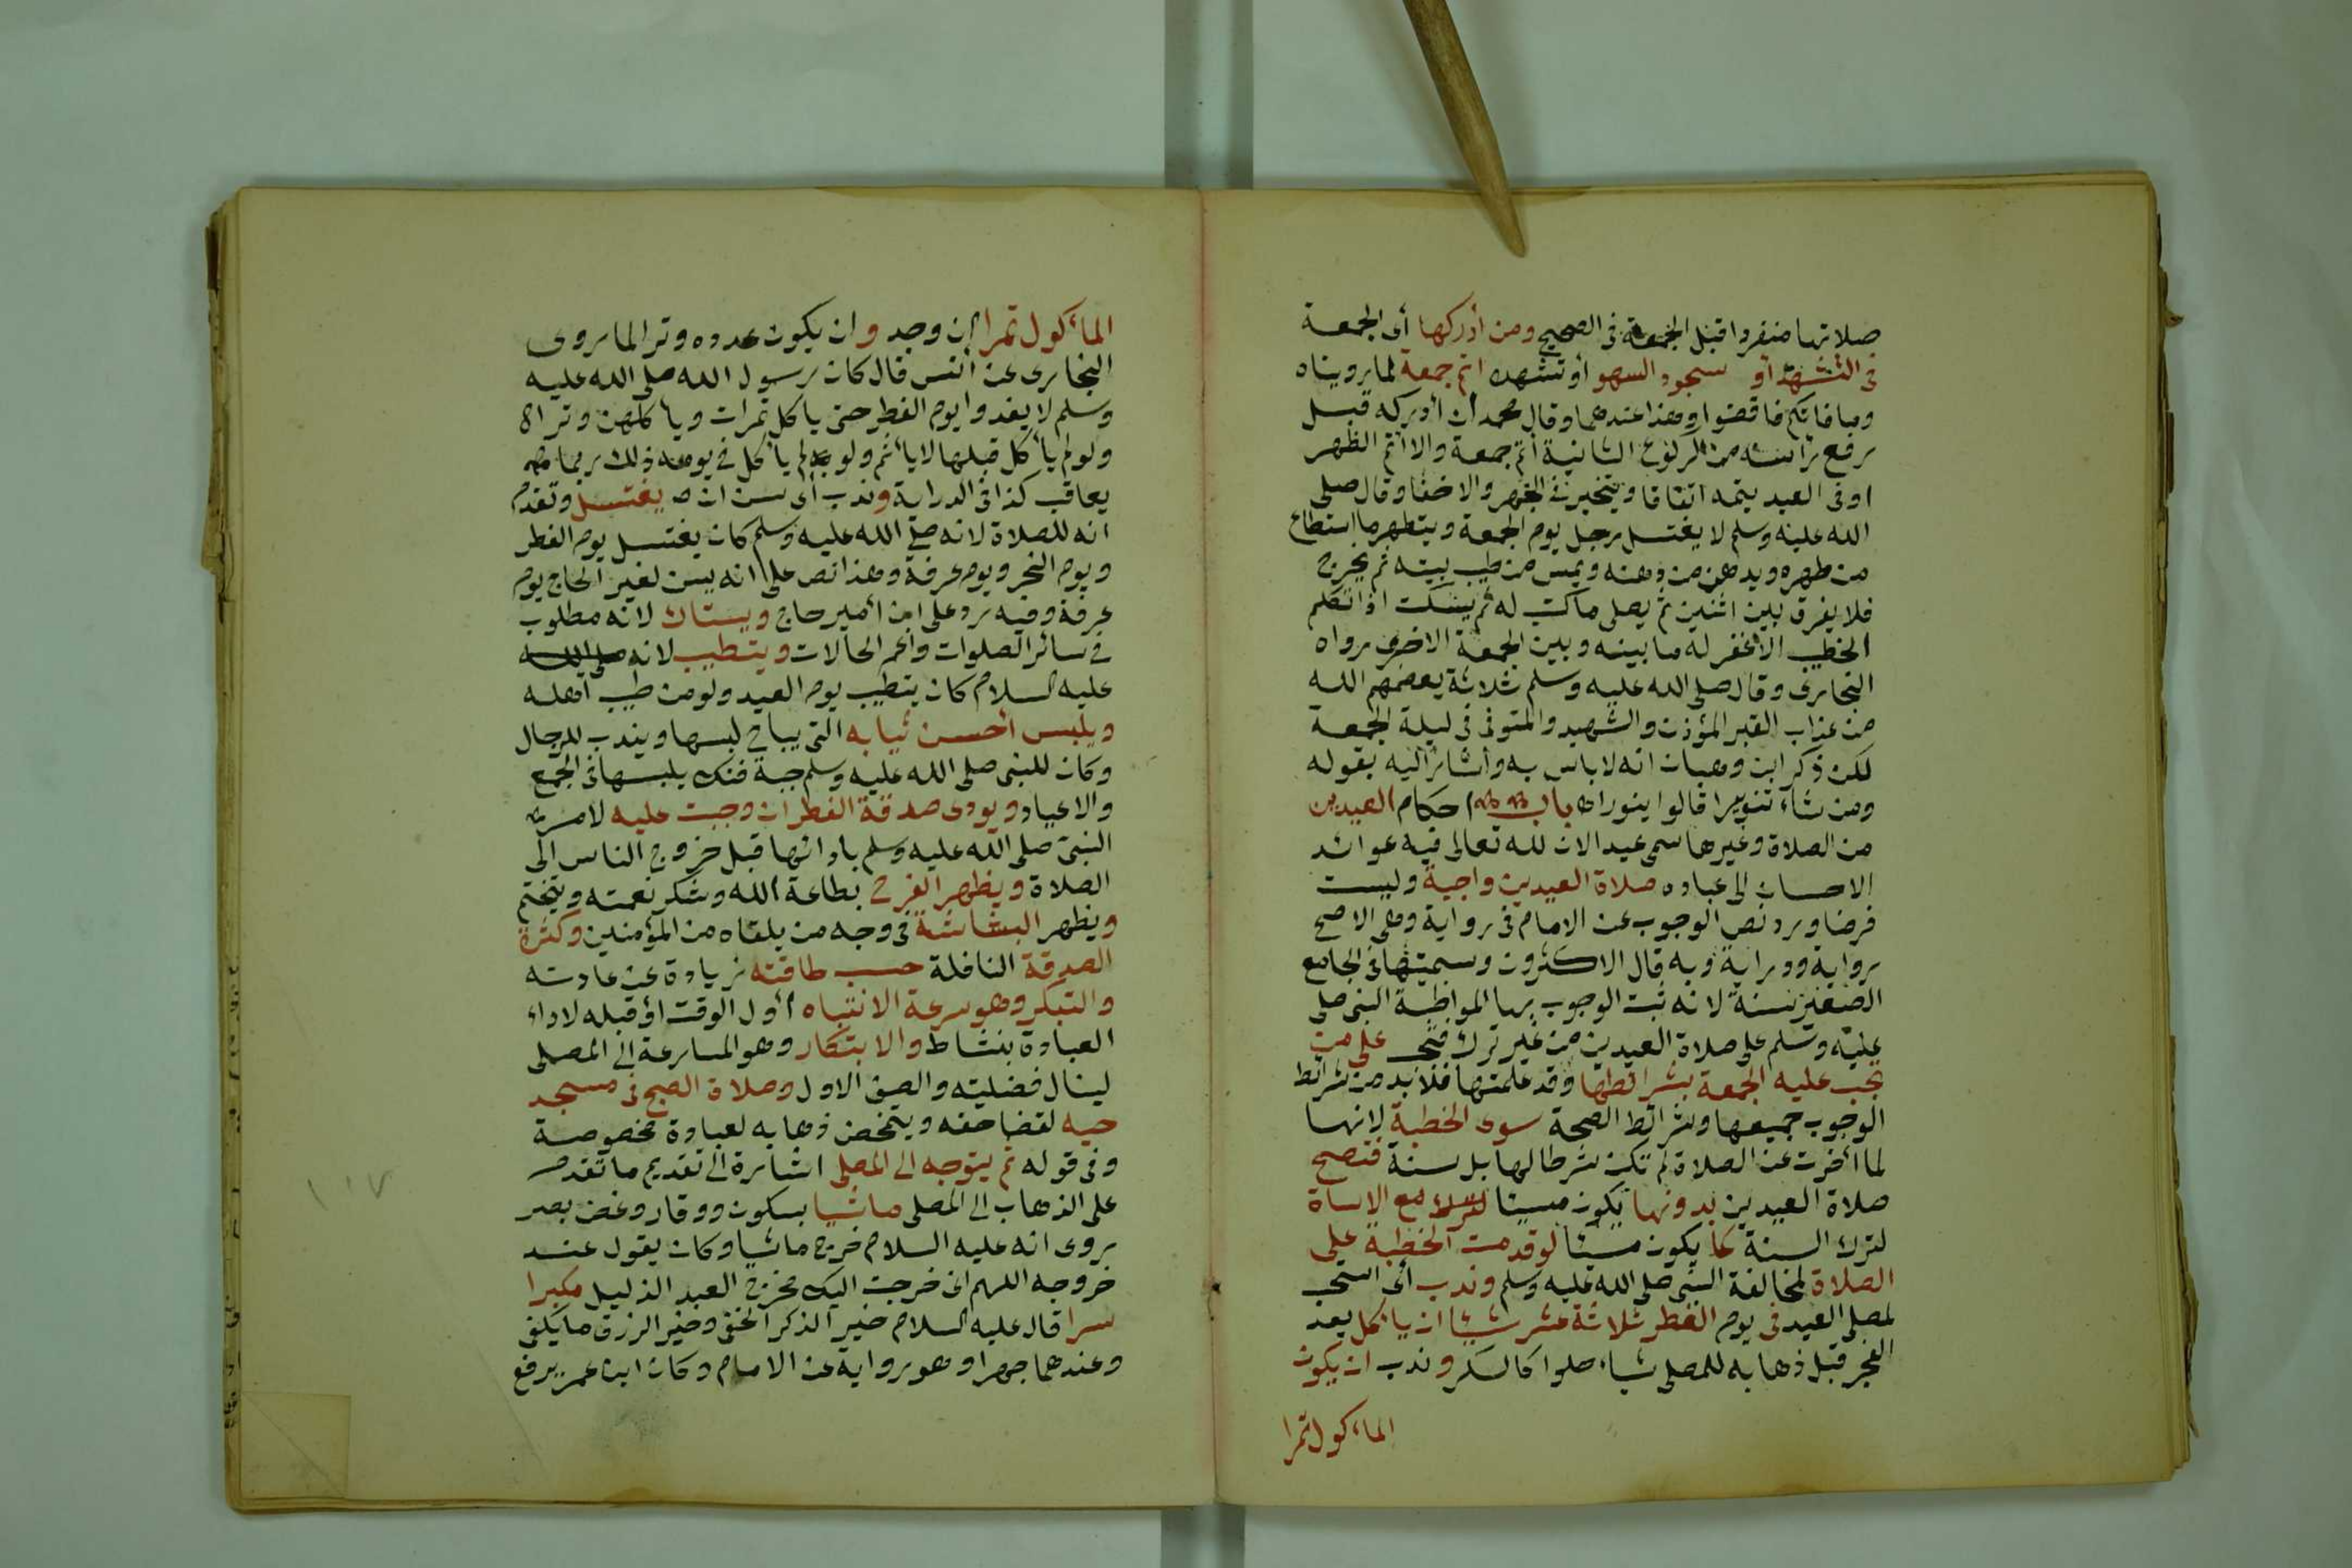 صلاتها منفردا قبل الجمعة فى الصحيح ومن أدركها أى الجمعة
فى التشهد أو سجود السهو أو تشهده اتم جمعة لما رويناه
وما فاتكم فاقضوا وهذا عندهما وقال محمد ان أدركه قبل
رفع رأسه من الركوع الثانية أتم جمعة والا أتم الظهر
اوفى العيد يتمه اتفاقا ويتخير فى الجهر والاخفا وقال صلى
الله عليه وسلم لا يغتسل رجل يوم الجمعة ويتطهر ما استطاع
من طهره ويدهن من دهنه ويمس من طيب بيته ثم يخرج
فلا يفرق بين اثنين ثم يصلى ما كتب له ثم يسكت اذا تكلم
الخطيب الا غفر له ما بينه وبين الجمعة الاخرى رواه
البخارى وقال صلى الله عليه وسلم ثلاثة يعصمهم الله
من عذاب القبر المؤذن والشهيد والمتوفى فى ليلة الجمعة
لكن ذكر ابن وهبان انه لا باس به وأشار اليه بقوله
ومن شاء تنويرا قالوا ينور اه باب احكام العيدين
من الصلاة وغيرها سمى عيد الان لله تعالى فيه عوائد
الاحسان الى عباده صلاة العيدين واجبة وليست
فرضا ورد نص الوجوب عن الامام فى رواية وهى الاصح
رواية ودراية وبه قال الاكثرون وسميتها فى الجامع
الصغير سنة لانه ثبت الوجوب بها المواظبة النبى صلى
عليه وسلم على صلاة العيدين من غير ترك فتجب على من
تجب عليه الجمعة بشرائطها وقد علمتها فلا بد من شرائط
الوجوب جميعها وشرائط الصحة سوى الخطبة لانها
لما أخرت عن الصلاة لم تكن شرطا لها بل سنة فتصح
صلاة العيدين بدونها يكون مسيئا مع الاساة
لترك السنة كما يكون مسيئا لو قدمت الخطبة على
الصلاة لمخالفة النبى صلى الله عليه وسلم وندب أى استحب
لمصلى العيد فى يوم الفطر ثلاثة عشر شيئا ان ياكل بعد
الفجر قبل ذهابه للمصلى شياء حلوا كالسكر وندب ان يكون
الماءكول تمرا
الماءكول تمرا ان وجد وان يكون عدده وترا لما روى
البخارى عن أنس قال كان رسول الله صلى الله عليه
وسلم لا يغدوا يوم الفطر حتى ياكل تمرات وياكلهن وترا اه
ولو لم يأكل قبلها لا يأثم ولو لم يأكل فى يومه ذلك ربما
يعاقب كذا فى الدراية وندب أى سن ان يغتسل وتقدم
انه للصلاة لانه صلى الله عليه وسلم كان يغتسل يوم الفطر
ويوم النحر ويوم عرفة وهذا نص على انه يسن لغير الحاج يوم
عرفة وفيه رد على ابن أمير حاج ويستاك لانه مطلوب
فى سائر الصلوات وأعم الحالات ويتطيب لانه صلى الله
عليه السلام كان يتطيب يوم العيد ولو من طيب أهله
ويلبس أحسن ثيابه التى يباح لبسها ويندب للرجال
وكان للنبى صلى الله عليه وسلم جبة فنك يلبسها فى الجمع
والاعياد ويودى صدقة الفطر ان وجبت عليه لامر
النبى صلى الله عليه وسلم بادائها قبل خروج الناس الى
الصلاة ويظهر الفرح بطاعة الله وشكر نعمته ويتختم
ويظهر البشاشة فى وجه من يلقاه من المؤمنين وكثرة
الصدقة النافلة حسب طاقته زيادة عن عادته
والتبكر وهو سرعة الانتباه أول الوقت أو قبله لاداء
العبادة بنشاط والابتكار وهو المسارعة الى المصلى
لينال فضليته والصف الاول وصلاة الصبح فى مسجد
حيه لقضا حقه ويتمحض ذهابه لعبادة مخصوصة
وفى قوله ثم يتوجه الى المصلى اشارة الى تقديم ما تقدم
على الذهاب الى المصلى ماشيا بسكون ووقار وغض بصر
روى انه عليه السلام خرج ماشيا وكان يقول عند
خروجه اللهم انى خرجت اليك مخرج العبد الذليل مكبرا
سرا قال عليه السلام خير الذكر الخفى وخير الرزق ما يكفى
وعندهما جهرا وهو رواية عن الامام وكان ابن عمر يرفع
١١٧